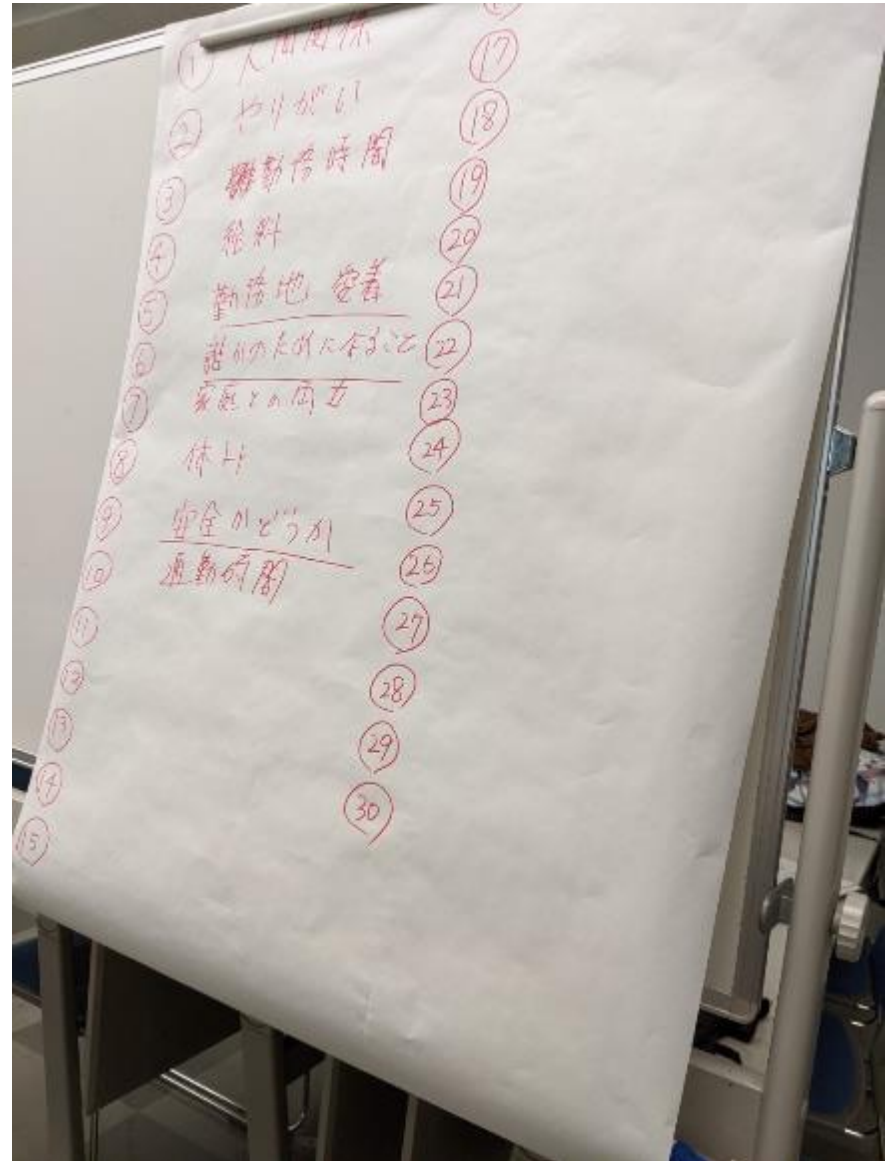 ① 人間関係
② やりがい
③ 勤務時間
④ 給料
⑤ 勤務地 愛着
⑥ 誰かのためになること
⑦ 家庭との両立
⑧ 休み
⑨ 安全かどうか
⑩ 通勤時間
⑪
⑫
⑬
⑭
⑮
⑰
⑱
⑲
⑳
㉑
㉒
㉓
㉔
㉕
㉖
㉗
㉘
㉙
㉚